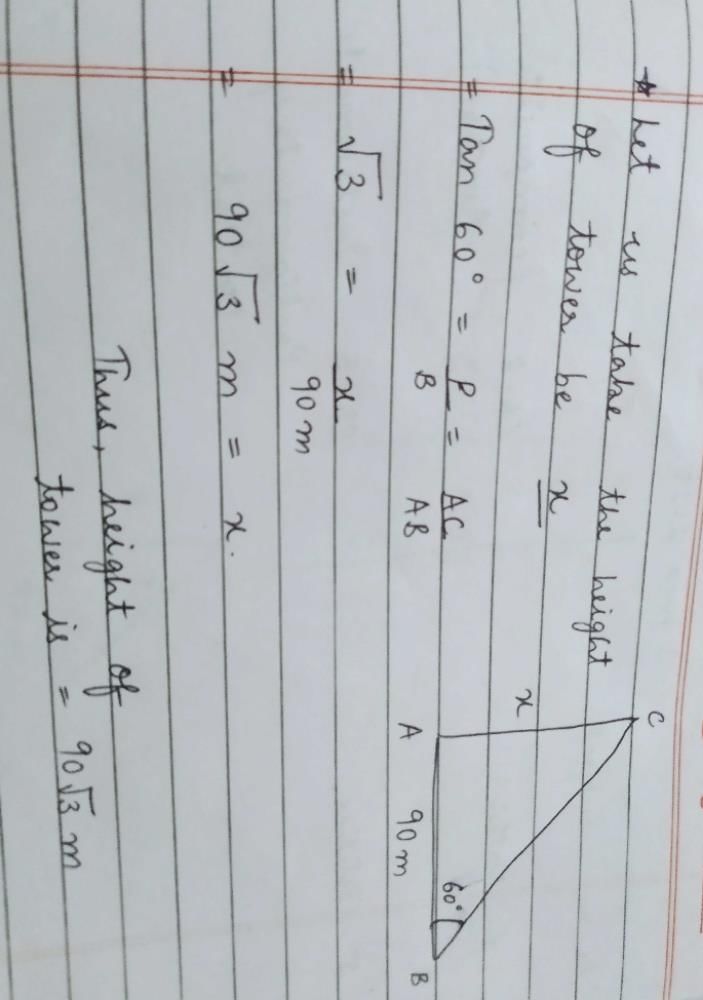 * Let us take the height
of tower be x
= Tan 60° = P/B = AC/AB
= √3 = x/90 m
= 90√3 m = x.
Thus, height of
tower is = 90√3 m
C
x
A
90 m
60°
B